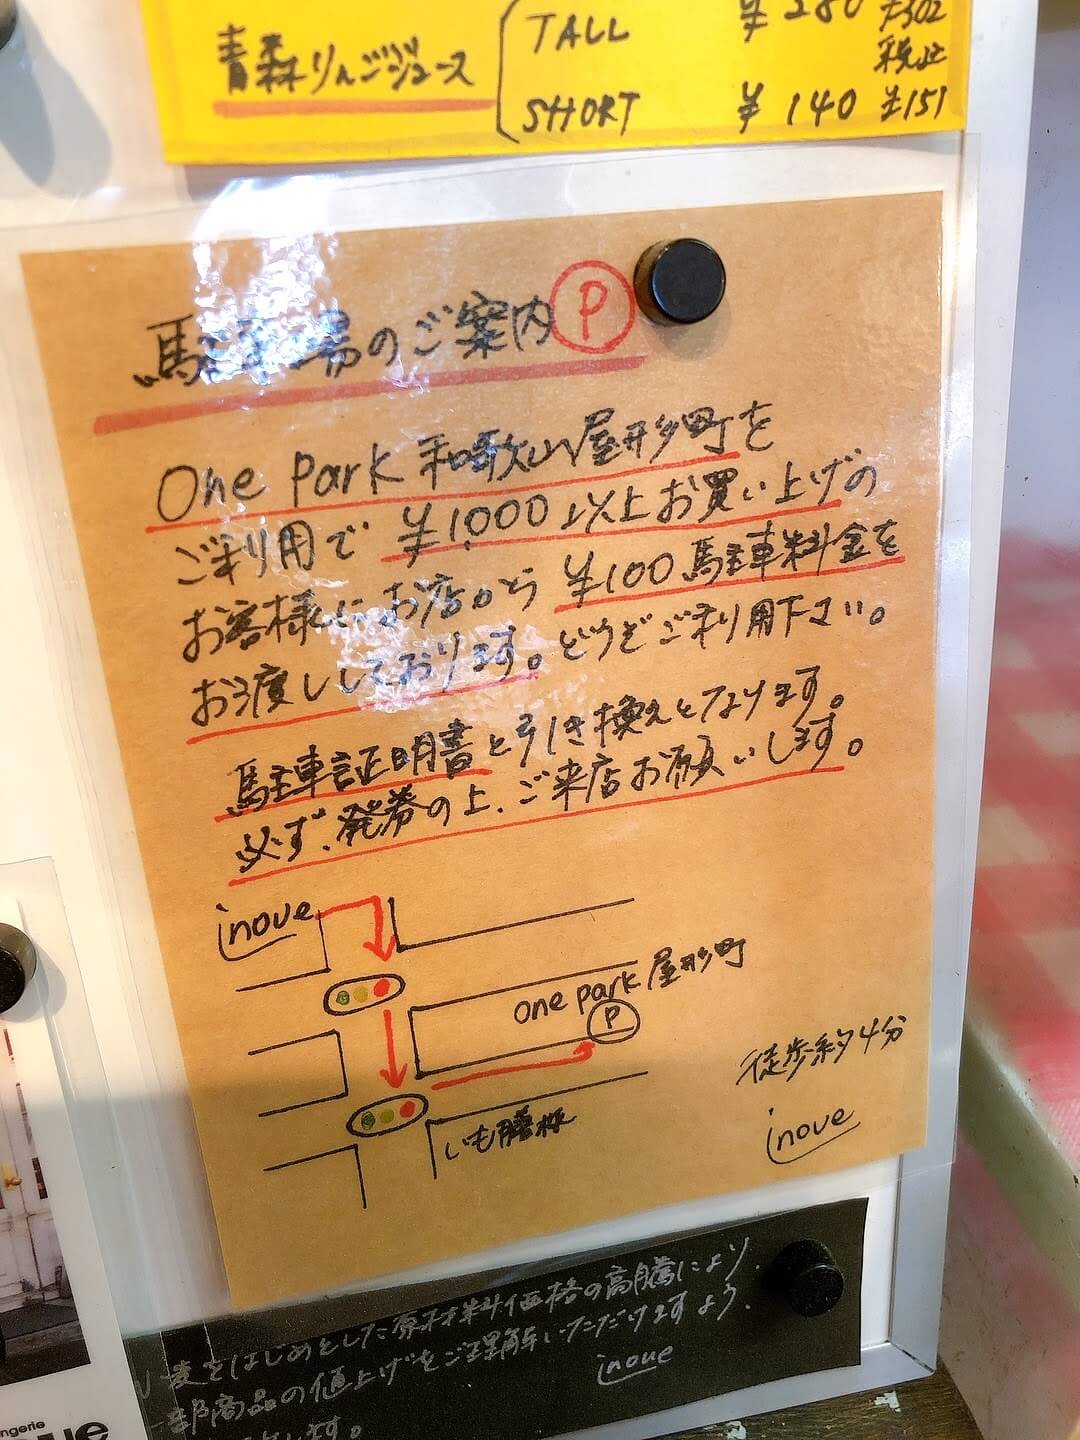 青森りんごジュース
TALL ¥280 ¥302
税込
SHORT ¥140 ¥151
駐車場のご案内 P
One Park 和歌山屋形町を
ご利用で ¥1,000以上お買い上げの
お客様にお店から ¥100駐車料金を
お渡ししております。どうぞご利用下さい。
駐車証明書と引き換えとなります。
必ず、発券の上、ご来店お願いします。
inoue
one park 屋形町
P
徒歩約4分
いも膳様
inoue
小麦をはじめとした原材料価格の高騰により、
一部商品の値上げをご理解いただけますよう、
します。
inoue